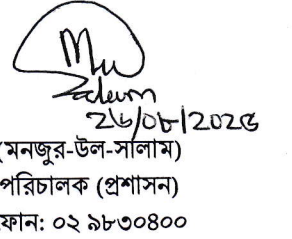 ২৬/০৮/২০২৫
(মনজুর-উল-সালাম)
পরিচালক (প্রশাসন)
ফোন: ০২ ৯৮৩০৪০০